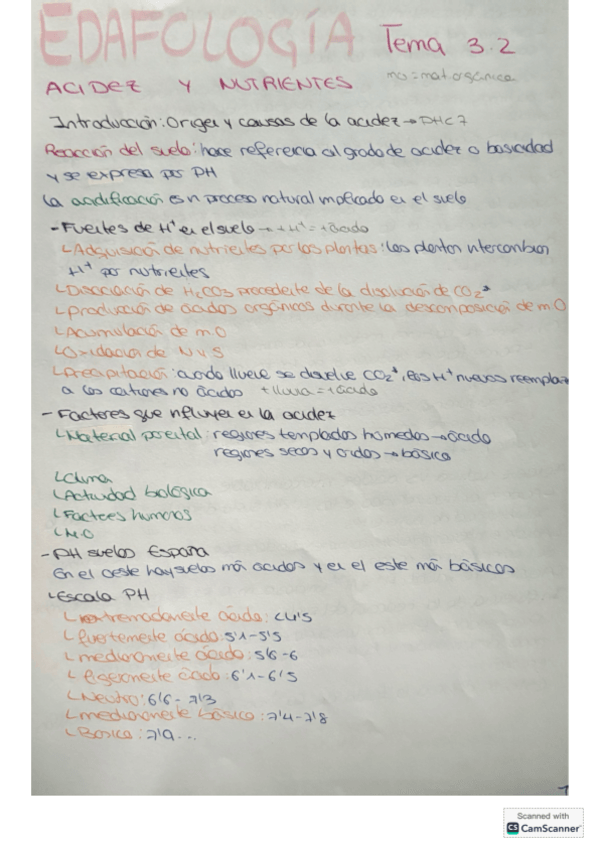 EDAFOLOGÍA Tema 3.2
mo = mat. orgánica
ACIDEZ Y NUTRIENTES
Introducción: Origen y causas de la acidez → PH<7
Reacción del suelo: hace referencia al grado de acidez o basicidad
y se expresa por PH
La acidificación es un proceso natural implicado en el suelo
- Fuentes de H⁺ en el suelo → + H⁺ = + ácido
└ Adquisición de nutrientes por las plantas: las plantas intercambian
H⁺ por nutrientes
└ Disociación de H₂CO₃ procedente de la disolución de CO₂
└ producción de ácidos orgánicos durante la descomposición de mO
└ Acumulación de mO
└ Oxidación de N y S
└ Precipitación: cuando llueve se disuelve CO₂, los H⁺ nuevos reemplazan
a los cationes no ácidos + lluvia = + ácido
- Factores que influyen en la acidez
└ Material parental: regiones templadas húmedas → ácido
regiones secas y áridas → básico
└ Clima
└ Actividad biológica
└ Factores humanos
└ M.O
- PH suelos España
En el oeste hay suelos más ácidos y en el este más básicos
└ Escala PH
└ extremadamente ácido: <4'5
└ fuertemente ácido: 5'1-5'5
└ medianamente ácido: 5'6-6
└ ligeramente ácido: 6'1-6'5
└ Neutro: 6'6-7'3
└ medianamente básico: 7'4-7'8
└ Básico: 7'9...
1
Scanned with
CS CamScanner